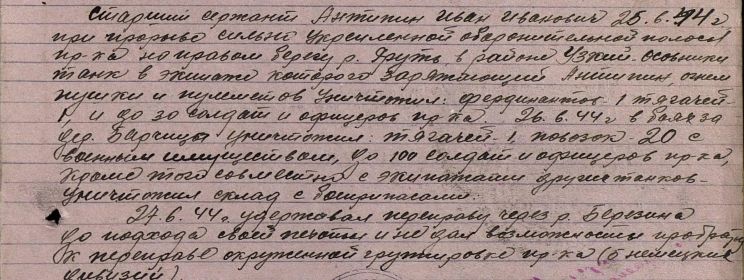 Старший сержант Антипин Иван Иванович 25.6.44 г
при прорыве сильно укрепленной оборонительной полосы
пр-ка на правом берегу р. Друть в районе Узкий-Осовники
танк в экипаже которого заряжающий Антипин, огнем
пушки и пулеметов уничтожил: фердинантов-1 тягачей-
1, и до 30 солдат и офицеров пр-ка. 26.6.44 г в боях за
дер. Барчицы уничтожил: тягачей-1, повозок-20 с
военным имуществом, до 100 солдат и офицеров пр-ка,
кроме того совместно с экипажами других танков-
уничтожил склад с боеприпасами.
27.6.44 г. удерживал переправу через р. Березина
до подхода своей пехоты и не дал возможности
к переправе окруженной группировке пр-ка (5 немецких
дивизий)